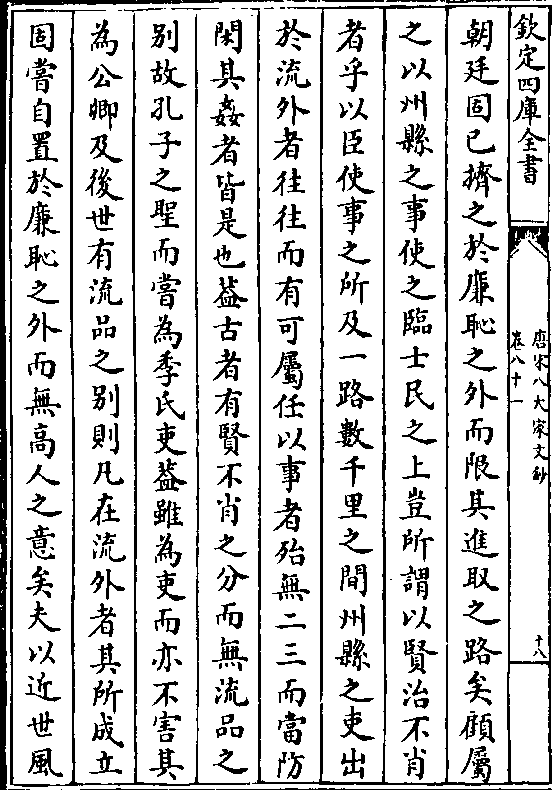 欽定四庫全書
唐宋八大家文鈔
卷八十一
十八
朝廷固已擠之於廉恥之外而限其進取之路矣顧屬
之以州縣之事使之臨士民之上豈所謂以賢治不肖
者乎以臣使事之所及一路數千里之間州縣之吏出
於流外者往往而有可屬任以事者殆無二三而當防
閑其姦者皆是也葢古者有賢不肖之分而無流品之
别故孔子之聖而嘗為季氏吏葢雖為吏而亦不害其
為公卿及後世有流品之别則凡在流外者其所成立
固嘗自置於廉恥之外而無高人之意矣夫以近世風